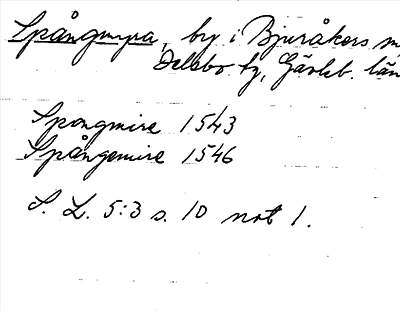 Spångmyra, by i Bjuråkers
Delsbo tg, Gävleb. län
Spongmire 1543
Spångemire 1546
S. L. 5:3 s. 10 not 1.